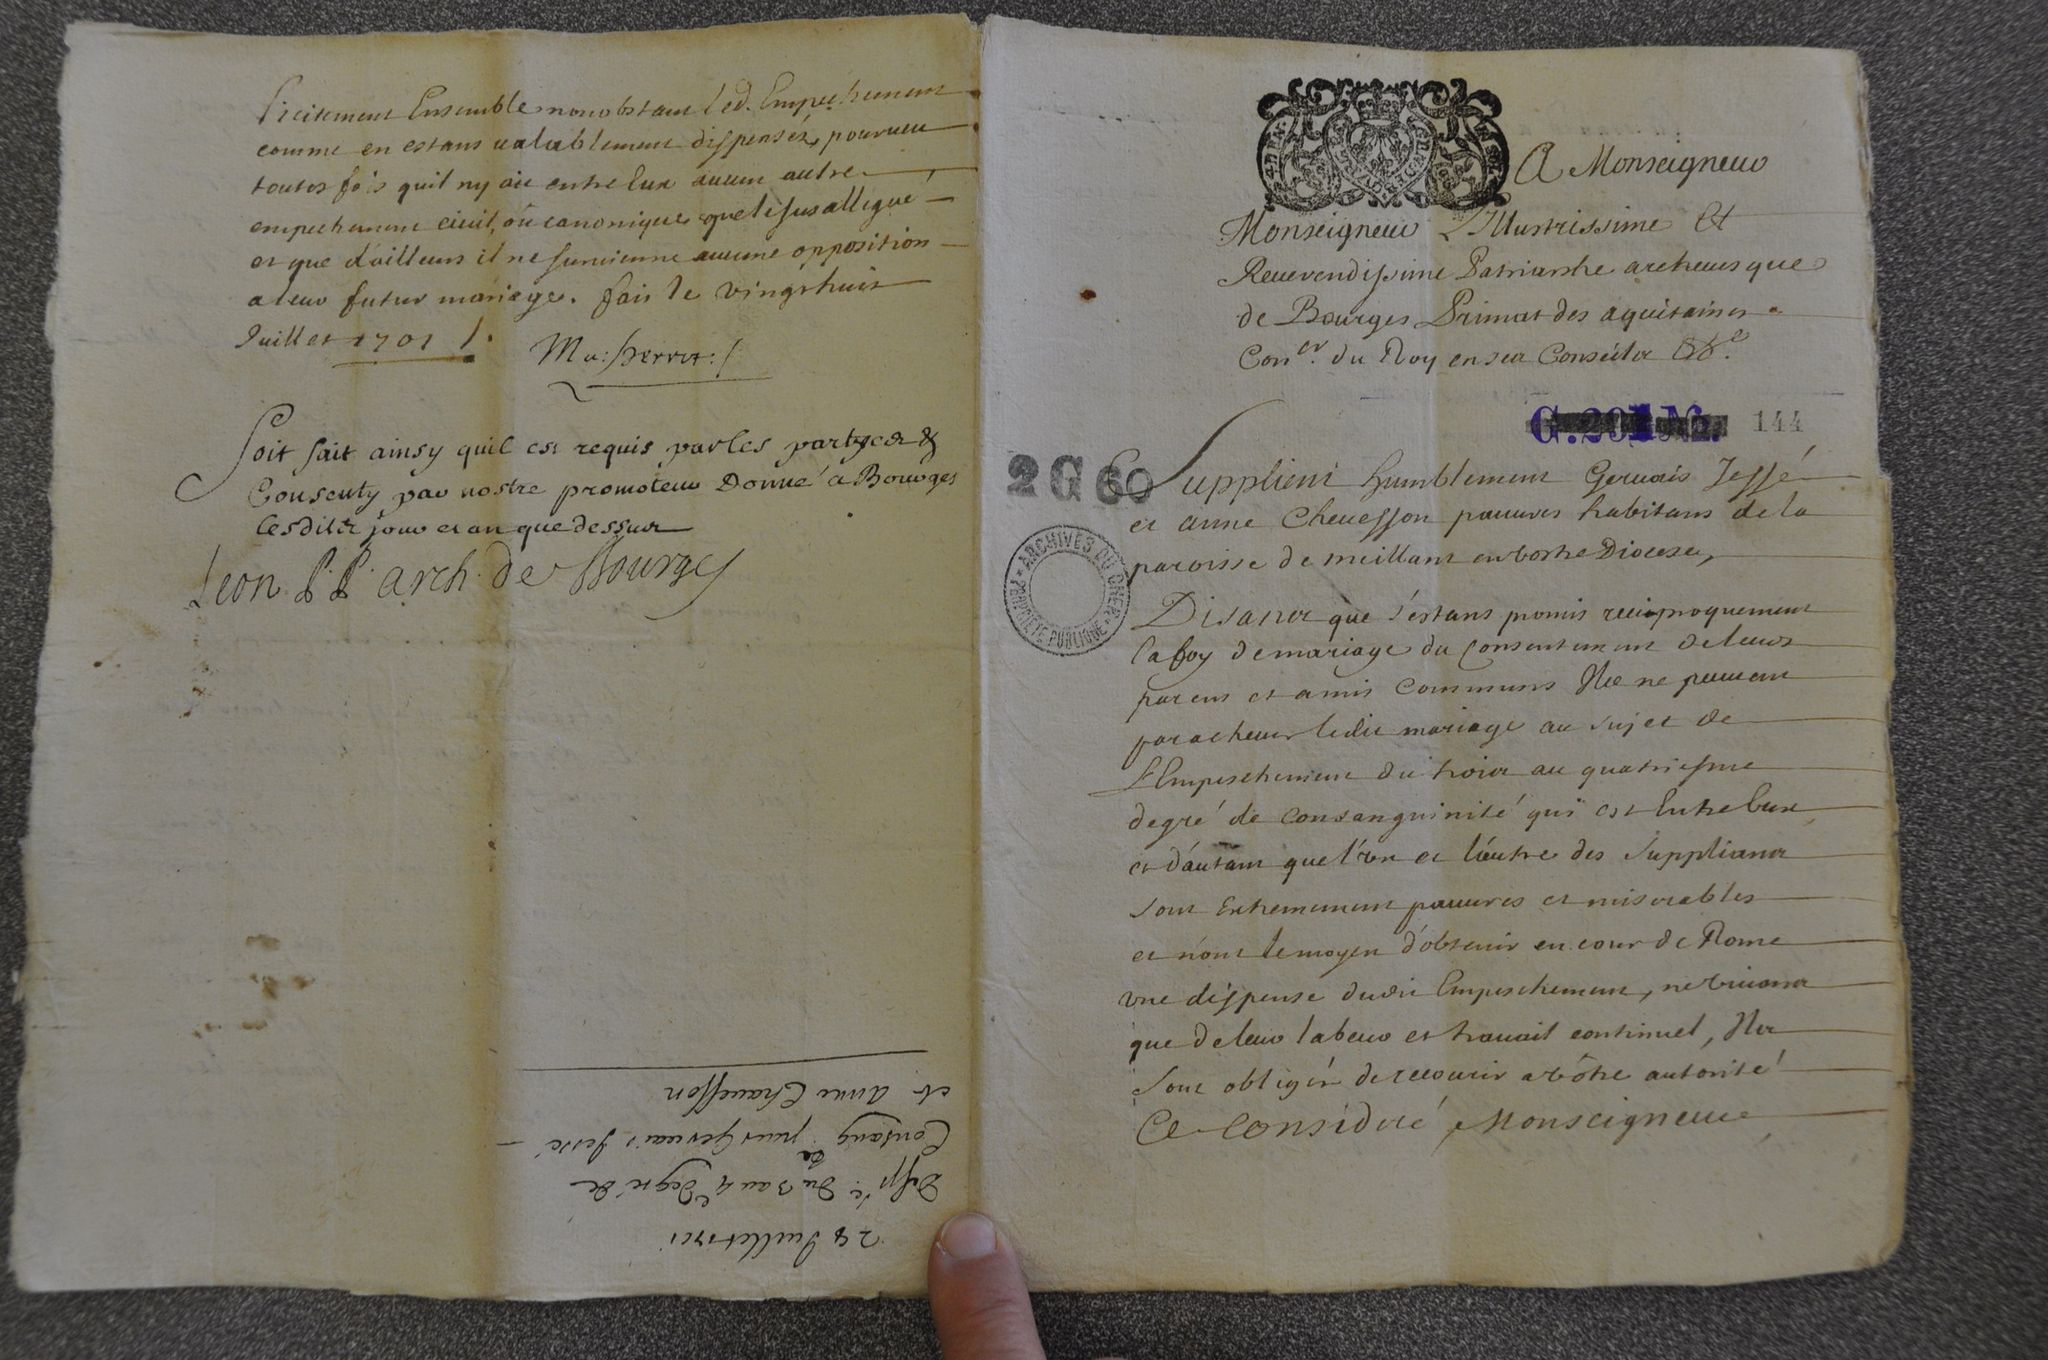 licitement Ensemble nonobstant led. Empechement
comme en estans valablement dispensez, pourveu
toutes fois quil ny ait entre Eux aucun autre
empechement civil, ou canonique que le susallegué
et que d'ailleurs il ne survienne aucune opposition
a leur futur mariage. fait le vingthuit
Juillet 1701 /.
Soit fait ainsy quil est requis par les partyes &
Consenty par nostre promoteur Donné a Bourges
lesdits jour et an que dessus
Leon P. P. arch. de Bourges
28 Juillet 1701
Disp.e du 3 au 4e degré de
Consang. pour Gervais Jessé
et anne Chauesson
A Monseigneur
Monseigneur L'Illustrissime Et
Reverendissime Patriarche archevesque
de Bourges Primat des aquitaines
Con.er du Roy en ses Conseils &c.
G. 201 N. 144
2 G 60
Supplient humblement Gervais Jessé
et anne Chevesson pauvres habitans de la
paroisse de meillant en vostre Diocese,
ARCHIVES DU CHER
PROPRIÉTÉ PUBLIQUE
Disans que s'estans promis reciproquement
la foy de mariage du consentement de leurs
parens et amis communs Ils ne peuvent
parachever ledit mariage au sujet de
l'Empeschement du trois au quatriesme
degré de consanguinité qui est Entre Eux
et d'autant que l'un et l'autre des Supplians
sont Extremement pauvres et miserables
et n'ont le moyen d'obtenir en cour de Rome
une dispense dudit Empeschement, ne vivans
que de leur labeur et travail continuel, Ils
sont obligés de recourir a vôtre autorité
Ce consideré, Monseigneur